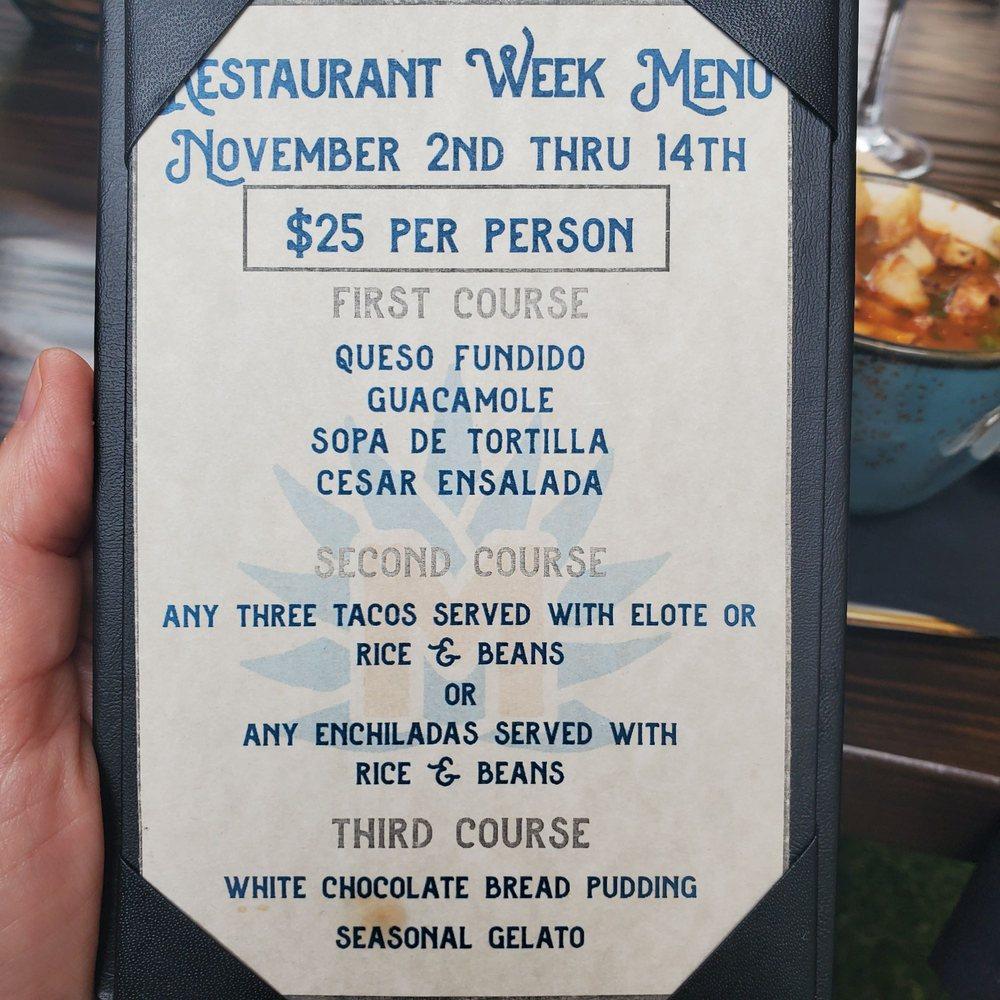 RESTAURANT WEEK MENU
NOVEMBER 2ND THRU 14TH
$25 PER PERSON
FIRST COURSE
QUESO FUNDIDO
GUACAMOLE
SOPA DE TORTILLA
CESAR ENSALADA
SECOND COURSE
ANY THREE TACOS SERVED WITH ELOTE OR
RICE & BEANS
OR
ANY ENCHILADAS SERVED WITH
RICE & BEANS
THIRD COURSE
WHITE CHOCOLATE BREAD PUDDING
SEASONAL GELATO